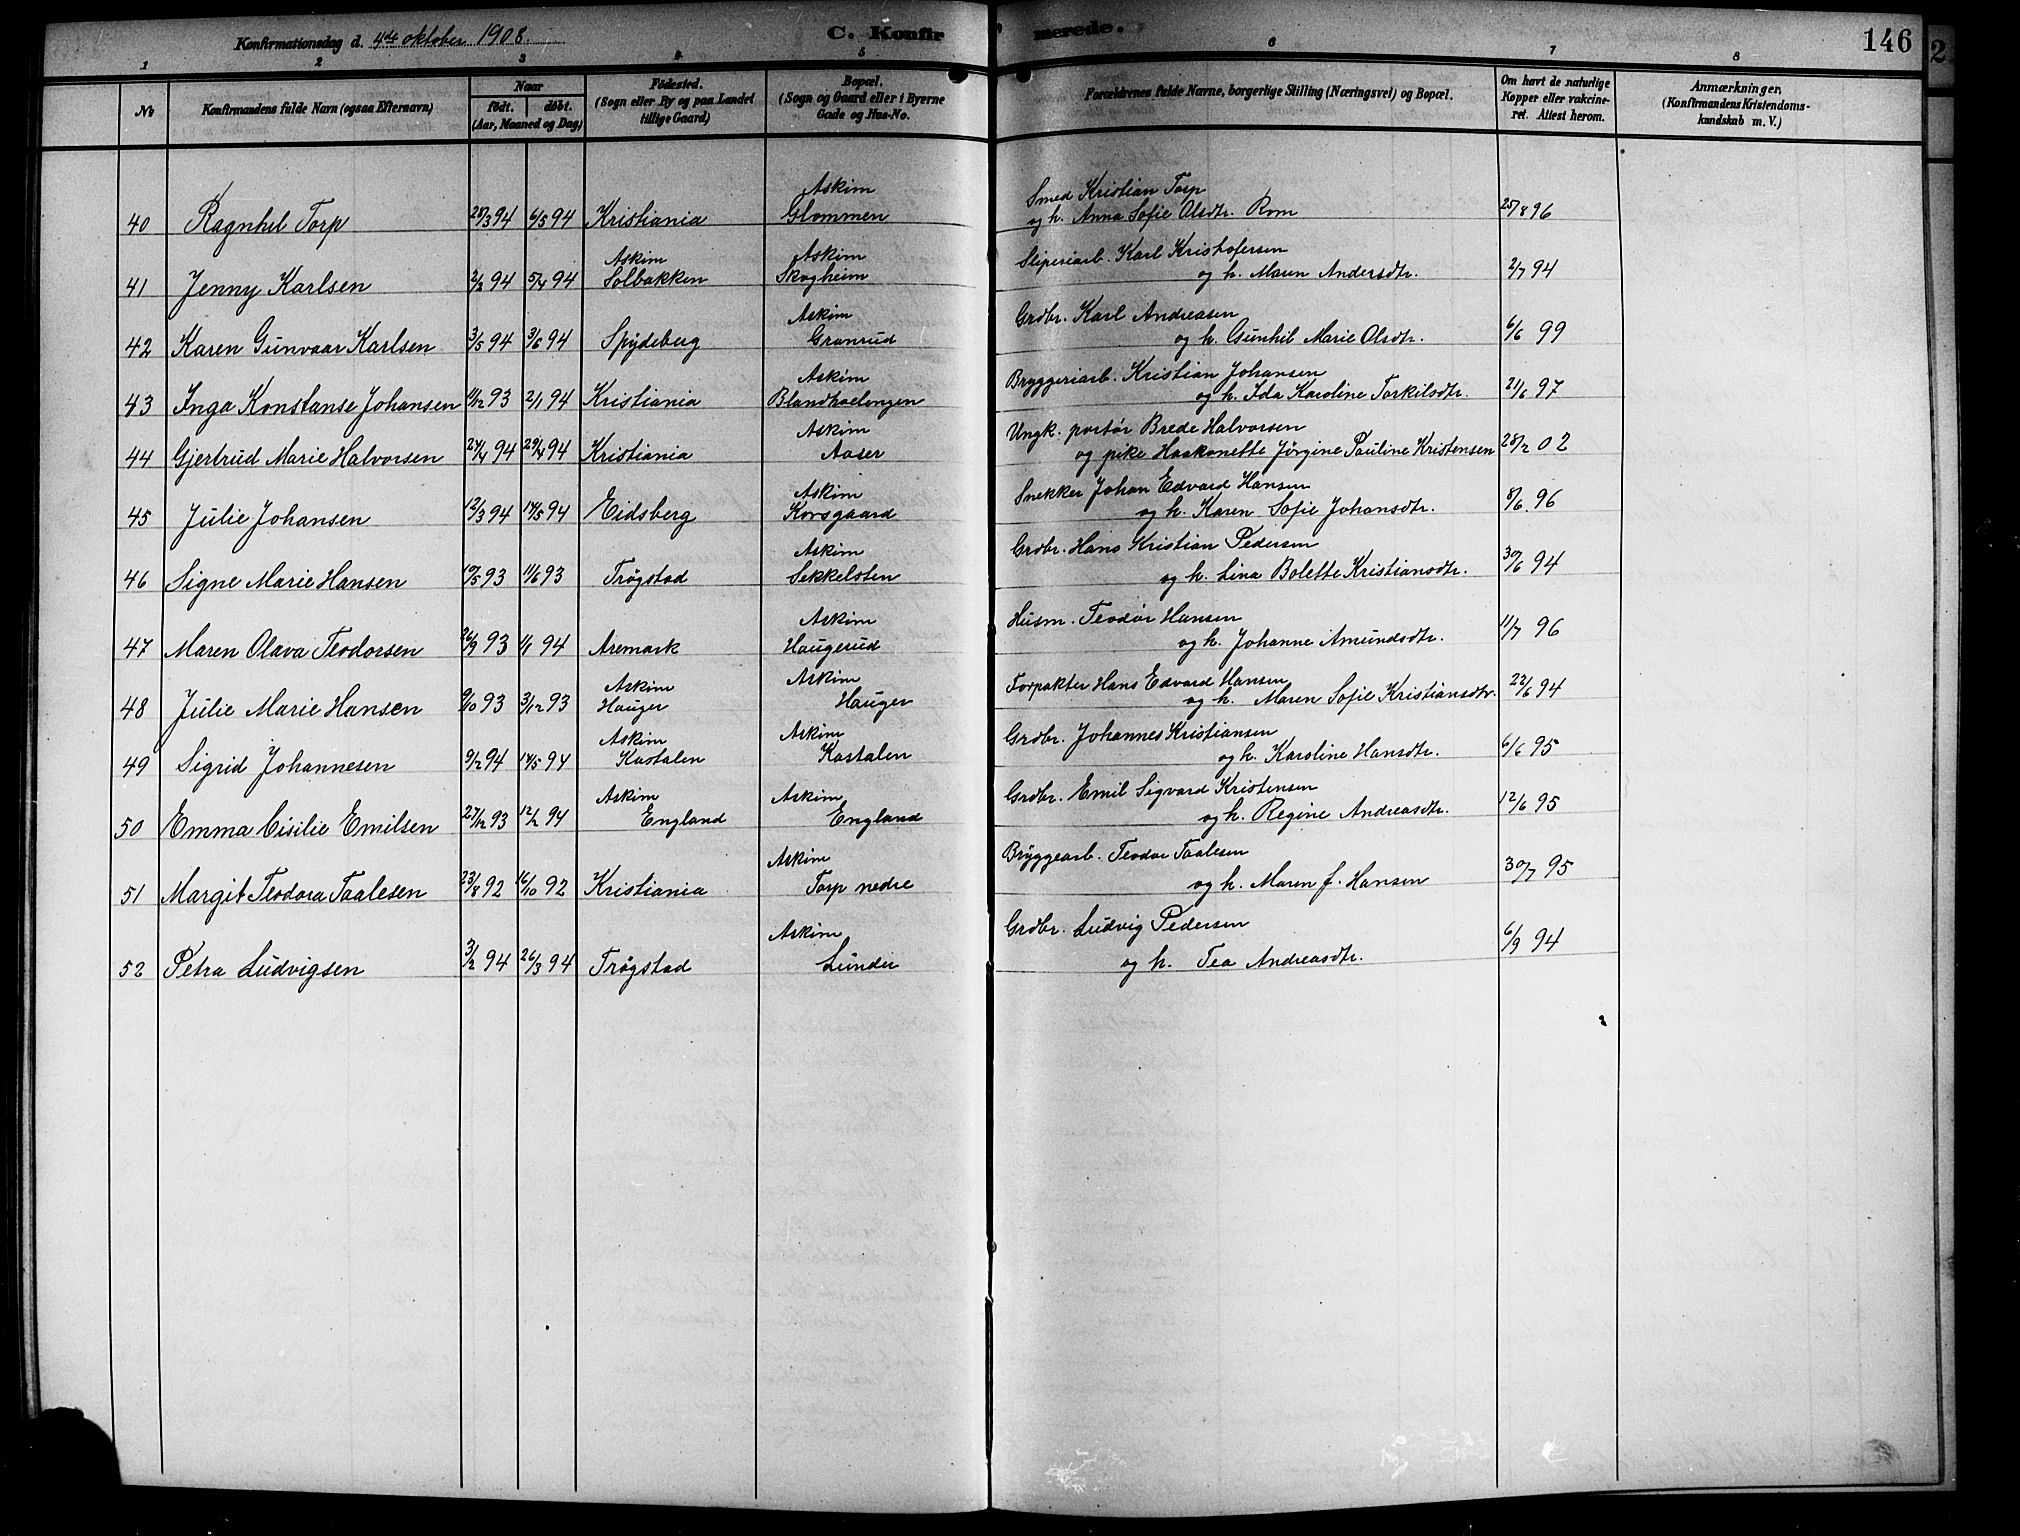 Konfirmationsdag d. 4de oktober 1908.
C. Konfirmerede.
146
2
1 2 3 4 5 6 7 8
No
Konfirmandens fulde Navn (ogsaa Efternavn)
Naar
født. døbt.
(Aar, Maaned og Dag)
Fødested.
(Sogn eller By og paa Landet
tillige Gaard)
Bopæl.
(Sogn og Gaard eller i Byerne
Gade og Hus-No.
Forældrenes fulde Navne, borgerlige Stilling (Næringsvei) og Bopæl.
Om havt de naturlige
Kopper eller vakcine-
ret. Attest herom.
Anmærkninger.
(Konfirmandens Kristendoms-
kundskab m. V.)
Askim Smed Kristian Torp
40 Ragnhil Torp 28/3 94 6/5 94 Kristiania Glommen og h. Anna Sofie Olsdtr. Rom 25/8 96
Askim Askim Sliperiarb. Karl Kristofersen
41 Jenny Karlsen 2/2 94 5/4 94 Solbakken Skogheim og h. Maren Andersdtr. 2/7 94
Askim Grdbr. Karl Andreasen
42 Karen Gunvaar Karlsen 3/5 94 3/6 94 Spydeberg Granrud og h. Gunhil Marie Olsdtr. 6/6 99
Askim Bryggeriarb. Kristian Johansen
43 Inga Konstanse Johansen 11/12 93 2/1 94 Kristiania Blandkaelengen og h. Ida Karoline Torkilsdtr. 21/6 97
Askim Ungk. portør Brede Halvorsen
44 Gjertrud Marie Halvorsen 24/4 94 29/4 94 Kristiania Aaser og pike Haakonette Jørgine Pauline Kristensen 28/2 02
Askim Snekker Johan Edvard Hansen
45 Julie Johansen 12/3 94 14/5 94 Eidsberg Korsgaard og h. Karen Sofie Johansdtr. 8/6 96
Askim Grdbr. Hans Kristian Pedersen
46 Signe Marie Hansen 10/5 93 11/6 93 Trøgstad Sekkelsten og h. Lina Bolette Kristiansdtr. 30/6 94
Askim Husm. Teodor Hansen
47 Maren Olava Teodorsen 26/9 93 1/1 94 Aremark Haugerud og h. Johanne Amundsdtr. 11/7 96
Askim Askim Forpakter Hans Edvard Hansen
48 Julie Marie Hansen 9/10 93 3/12 93 Hauger Hauger og h. Maren Sofie Kristiansdtr. 22/6 94
Askim Askim Grdbr. Johannes Kristiansen
49 Sigrid Johannesen 9/2 94 14/5 94 Kastalen Kastalen og h. Karoline Hansdtr. 6/6 95
Askim Askim Grdbr. Emil Sigvard Kristensen
50 Emma Cisilie Emilsen 27/12 93 12/2 94 England England og h. Regine Andreasdtr. 12/6 95
Askim Bryggearb. Teodor Taalesen
51 Margit Teodora Taalesen 23/8 92 16/10 92 Kristiania Torp nedre og h. Maren f. Hansen 30/7 95
Askim Grdbr. Ludvig Pedersen
52 Petra Ludvigsen 3/2 94 26/3 94 Trøgstad Lunder og h. Tea Andreasdtr. 6/9 94